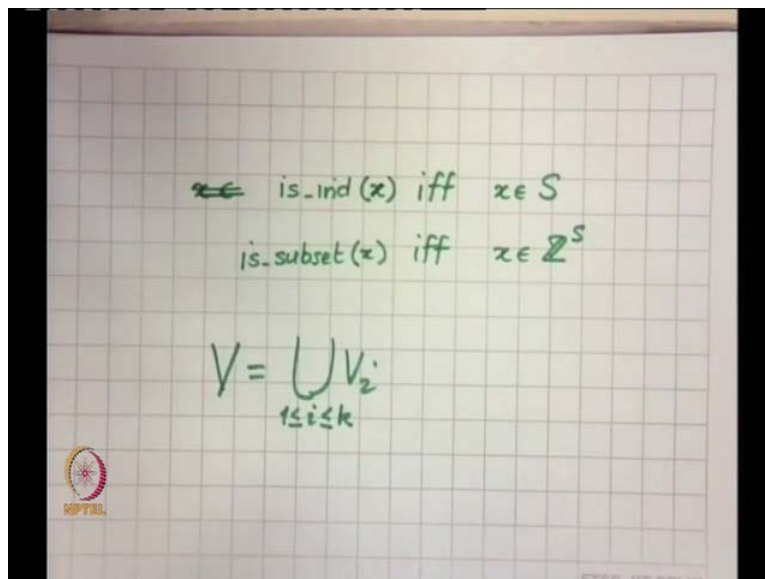 x∈ is_ind(x) iff x∈ S
is_subset(x) iff x∈ ℤ^S
V = ⋃ V_i
1≤i≤k
NPTEL